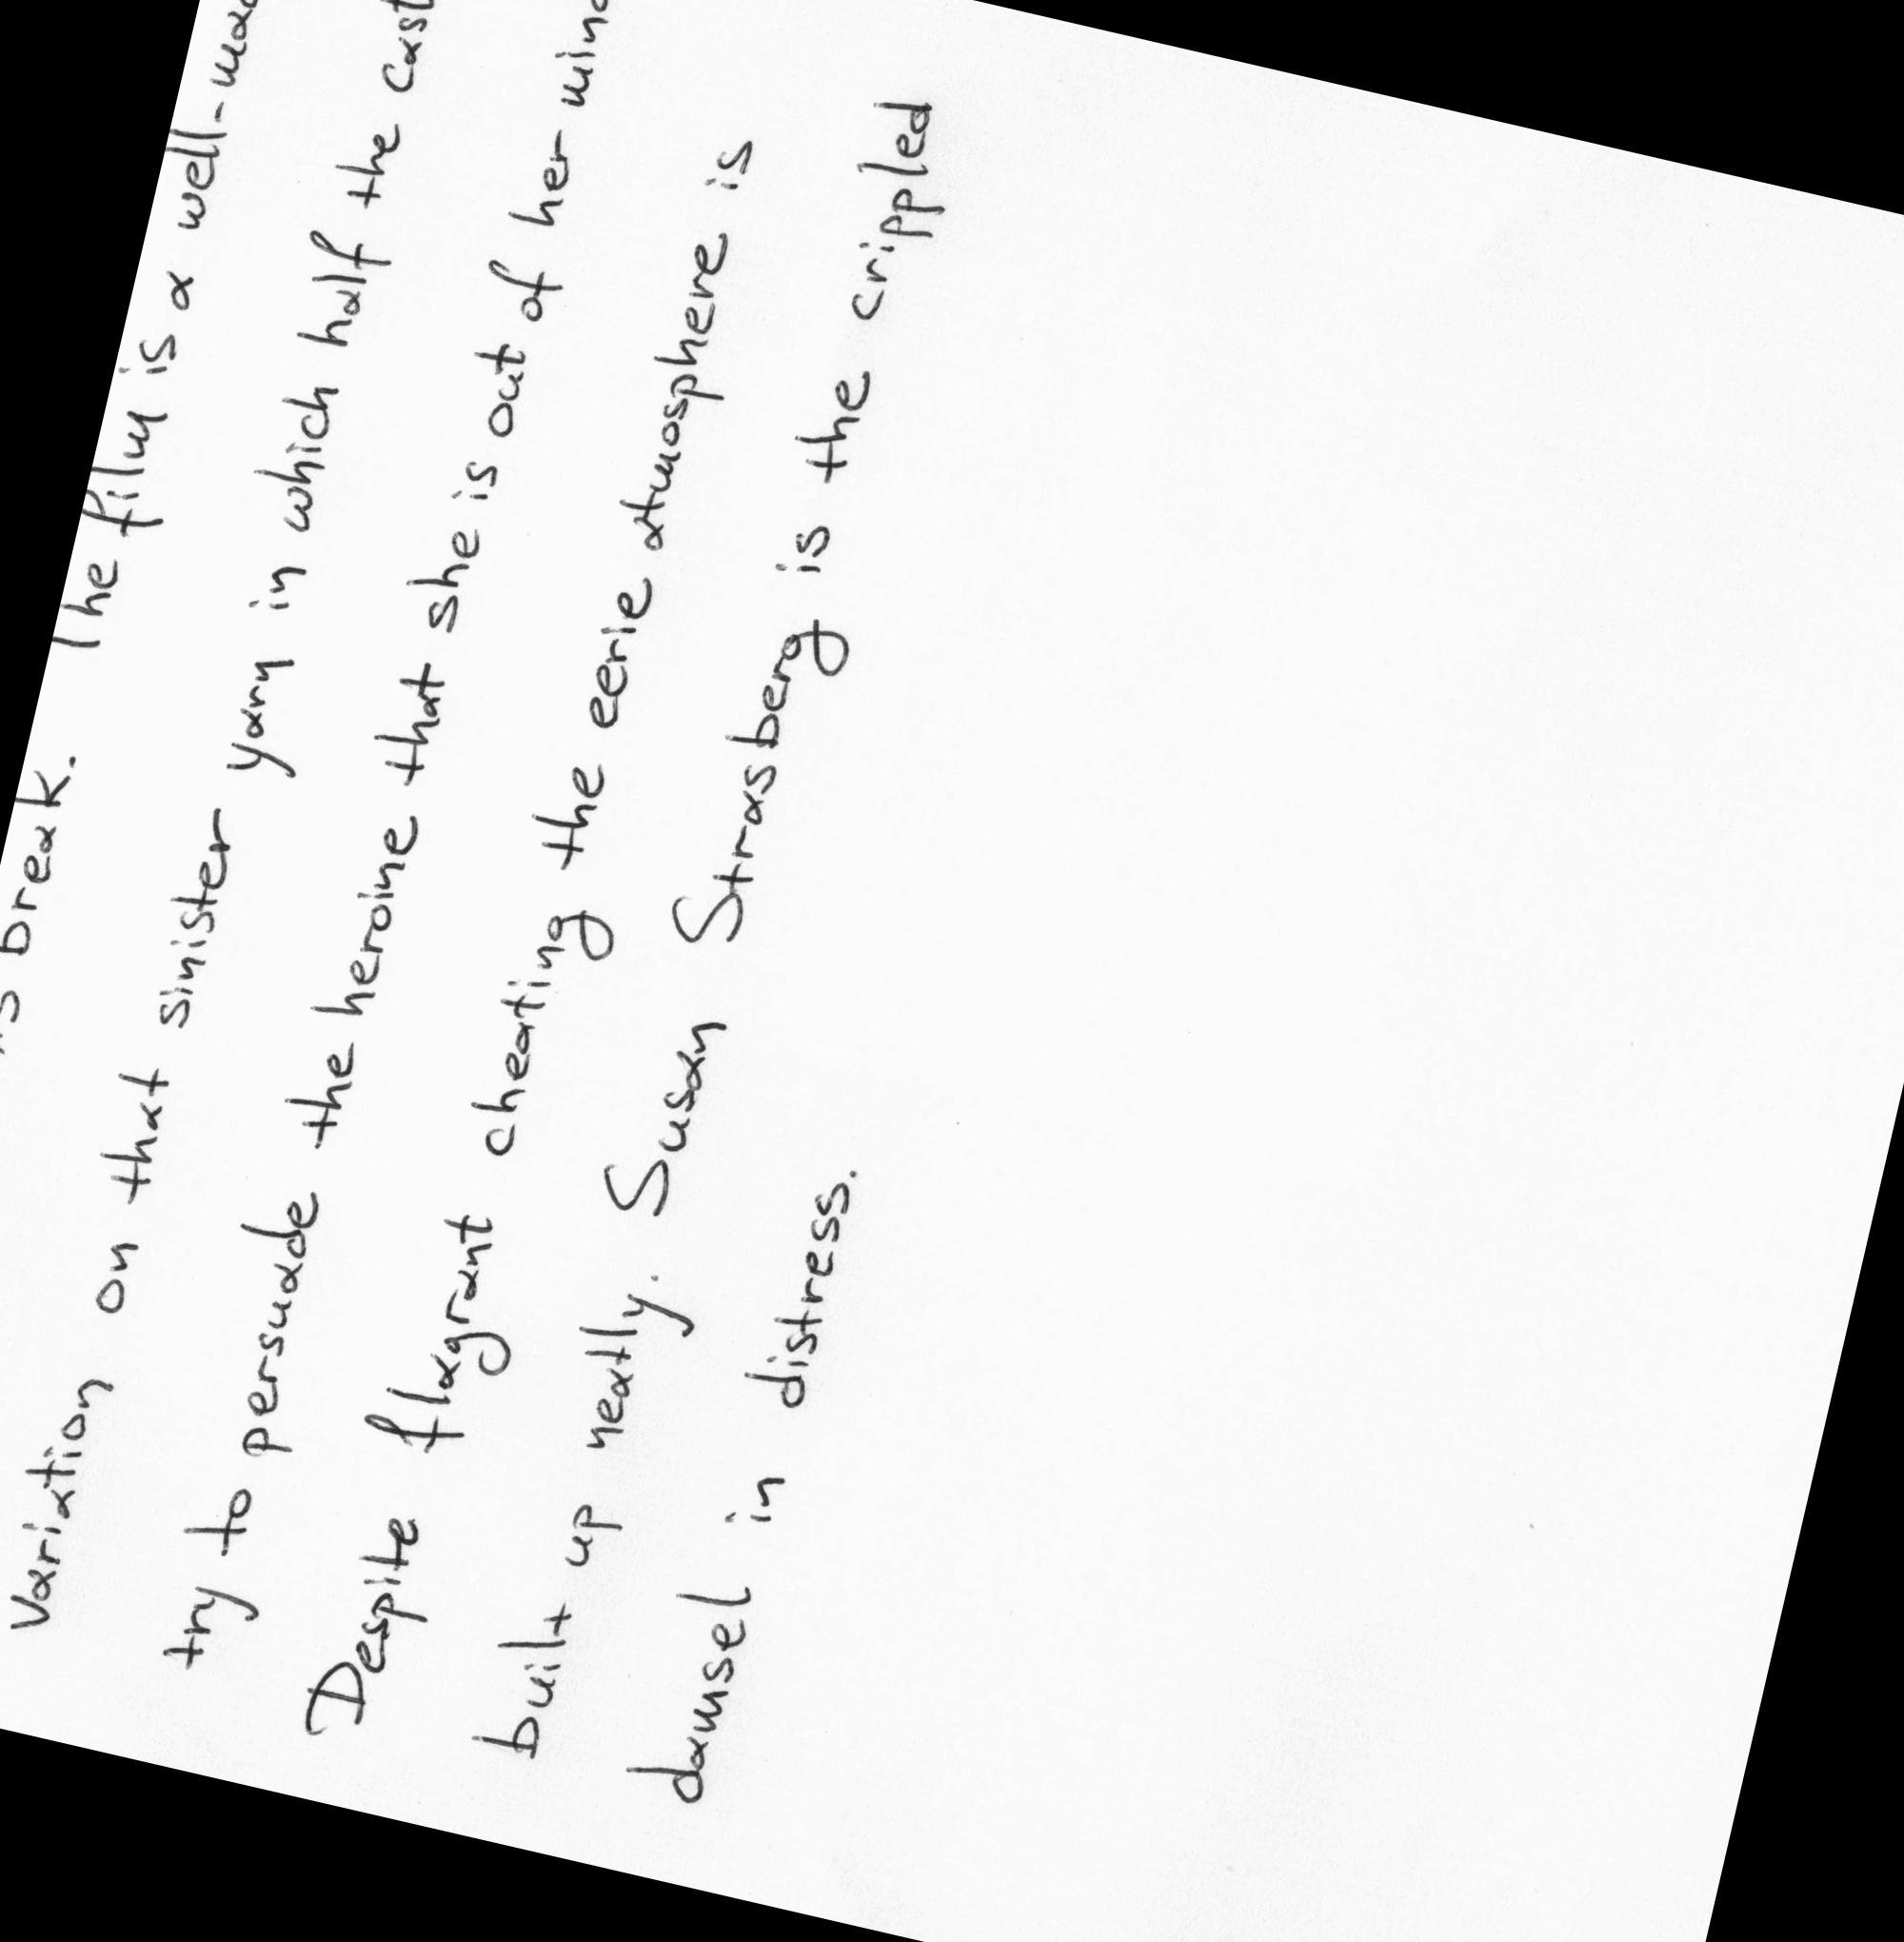 break. The film is a well-
Variation on that sinister yarn in which half the cast
try to persuade the heroine that she is out of her
Despite flagrant cheating the eerie atmosphere is
built up neatly. Susan Strasberg is the crippled
damsel in distress.